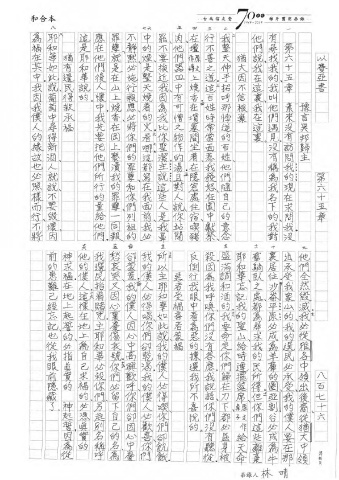 和合本
以賽亞書
第六十五章
八百七十六
第六十五章 素來沒有訪問我的現在求問我沒
有尋找我的我叫他們遇見沒有稱為我名下的我對
他們說我在這裏我在這裏
猶大因不信被棄
我整天伸手招呼那悖逆的百姓他們隨自己的意念
行不善之道這百姓時常當面惹我發怒在園中獻祭
在壇上燒香在墳墓間坐著在隱密處住宿吃豬
肉他們器皿中有可憎之物做的湯且對人說你站開
罷不要挨近我因為我比你聖潔主說這些人是我鼻
中的煙是整天燒着的火看哪這都寫在我面前我必
不靜默必施行報應必將你們的罪孽和你們列祖的
罪孽就是在山上燒香在岡上褻瀆我的罪孽一同報
應在他們後人懷中我先要把他們所行的量給他們
這是耶和華說的
耶和華如此說葡萄中尋得新酒人就說不要毀壞因
為福在其中我因我僕人的緣故也必照樣而行不將
他們全然毀滅我必從雅各中領出後裔從猶大中領
出承受我眾山的我的選民必承受我的僕人要在那
裏居住沙崙平原必成為羊群的圈亞割谷必成為牛
群躺臥之處都為尋求我的民所得但你們這些離棄
耶和華忘記我的聖山給時運擺筵席給天命
盛滿調和酒的我要命定你們歸在刀下都必屈身被
殺因為我呼喚你們沒有答應我說話你們沒有聽從
反倒行我眼中看為惡的揀選我所不喜悅的
惡者受禍善者蒙福
所以主耶和華如此說我的僕人必得吃你們卻飢餓
我的僕人必得喝你們卻乾渴我的僕人必歡喜你們
卻蒙羞我的僕人因心中高興歡呼你們卻因心中憂
愁哀哭又因心裏憂傷哀號你們必留下自己的名為
我選民指着賭咒主耶和華必殺你們另起別名稱呼
他的僕人這樣在地上為自己求福的必憑真實的
神求福在地上起誓的必指真實的 神起誓因為從
前的患難已經忘記也從我眼前隱藏了
抄錄人 林晴